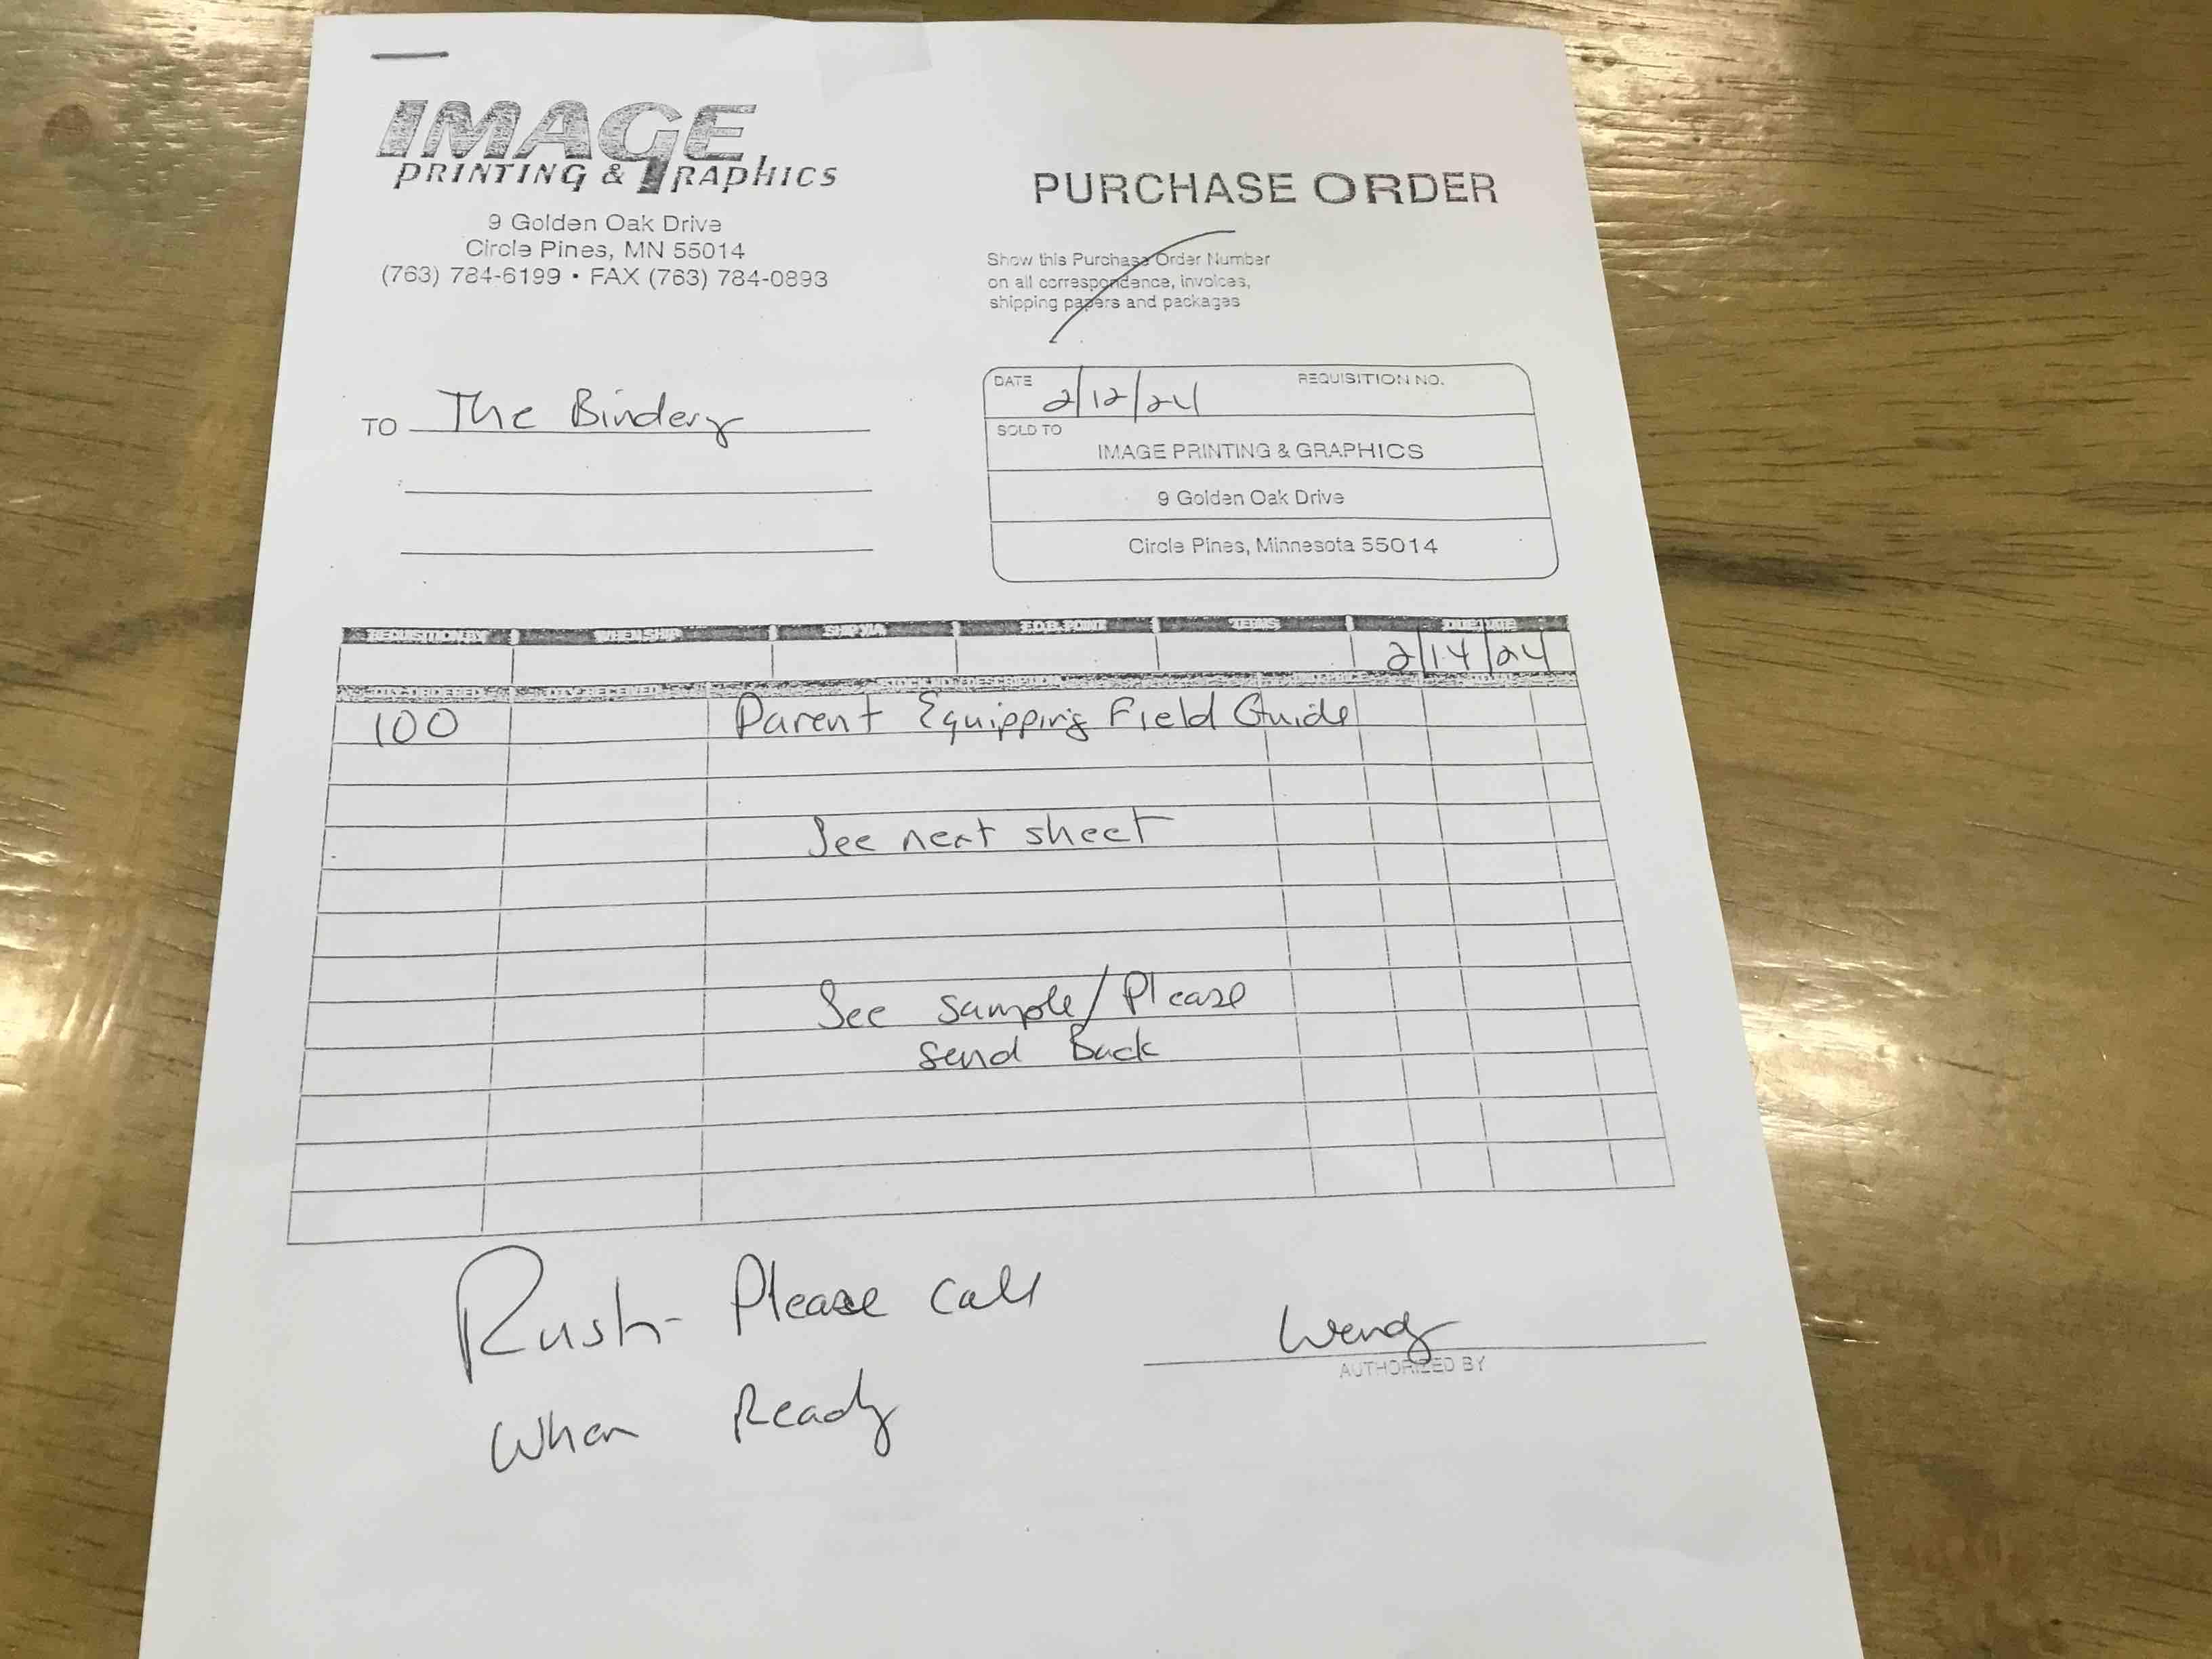 IMAGE
PRINTING & GRAPHICS
9 Golden Oak Drive
Circle Pines, MN 55014
(763) 784-6199 • FAX (763) 784-0893
PURCHASE ORDER
Show this Purchase Order Number
on all correspondence, invoices,
shipping papers and packages
TO The Bindery
DATE 2/12/24 REQUISITION NO.
SOLD TO
IMAGE PRINTING & GRAPHICS
9 Golden Oak Drive
Circle Pines, Minnesota 55014
REQUISITION BY WHEN SHIP SHIP VIA F.O.B. POINT TERMS DUE DATE
2/14/24
QTY. ORDERED QTY. RECEIVED STOCK NO./DESCRIPTION
100 Parent Equipping Field Guide
See next sheet
See Sample/Please
Send Back
Rush - Please call
When Ready
Wendy
AUTHORIZED BY